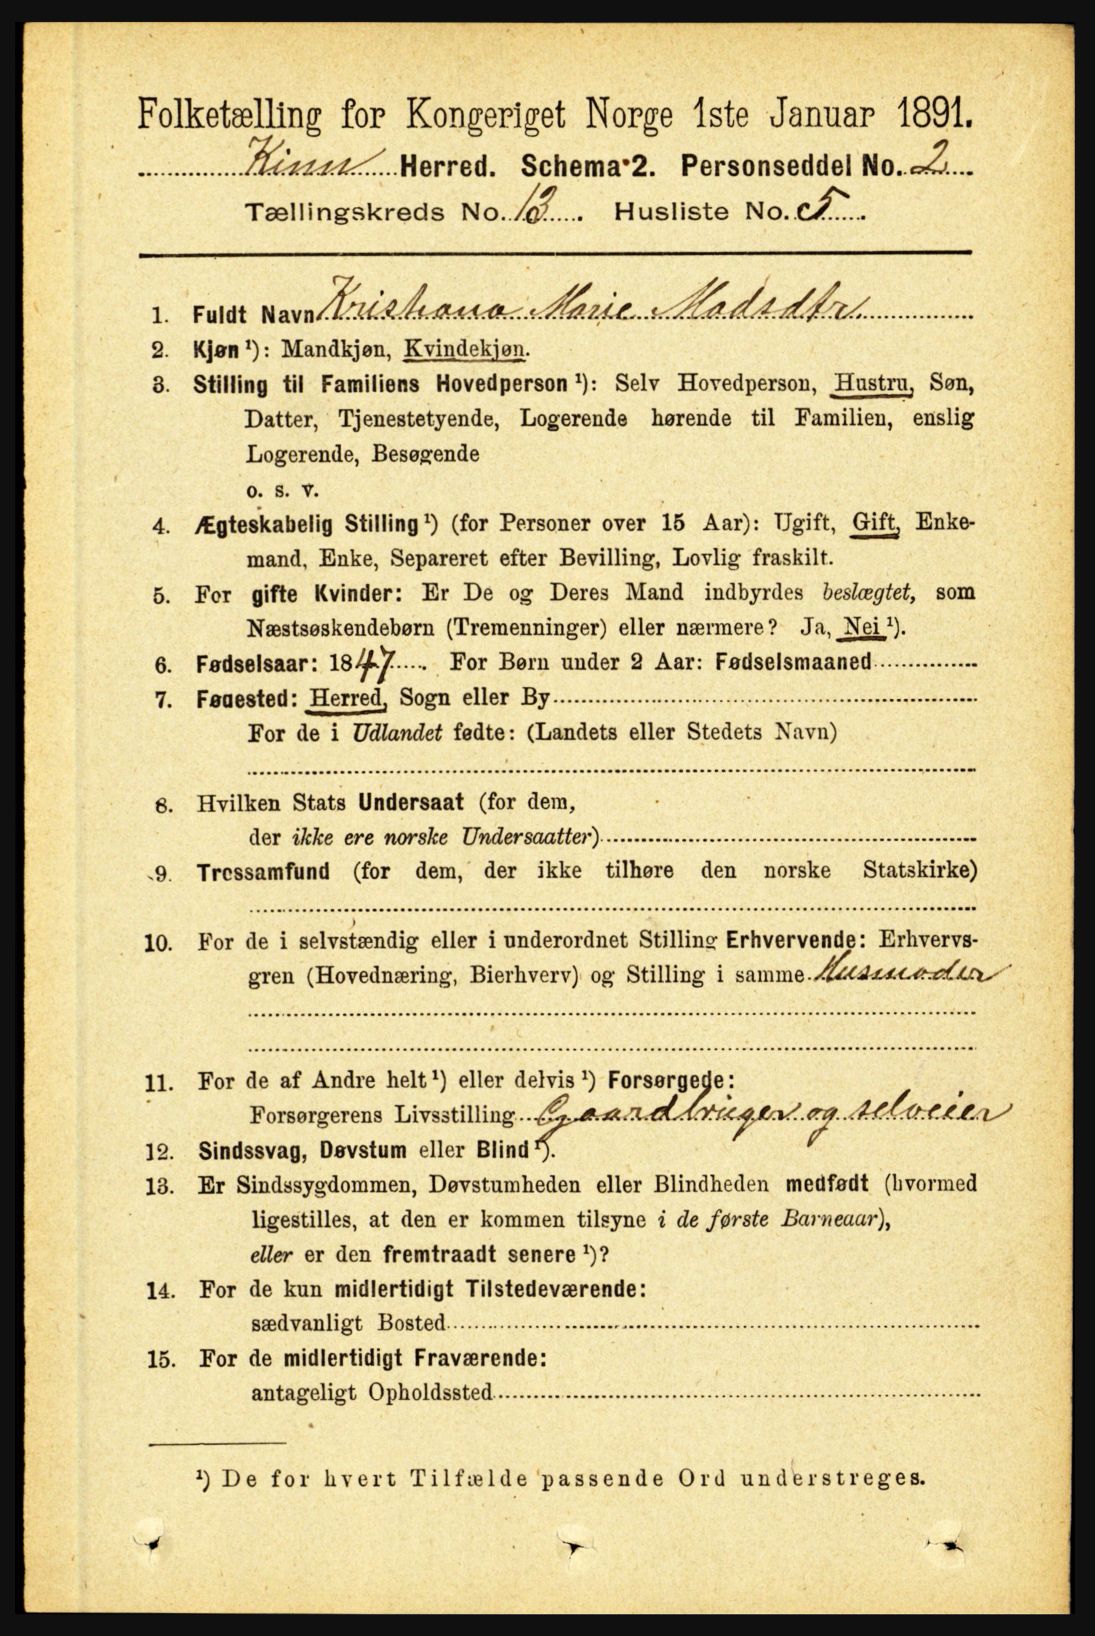 Folketælling for Kongeriget Norge 1ste Januar 1891.
Kinn Herred. Schema 2. Personseddel No. 2
Tællingskreds No. 13. Husliste No. 5.
1. Fuldt Navn Kristiana Marie Madsdtr.
2. Kjøn ¹): Mandkjøn, Kvindekjøn.
3. Stilling til Familiens Hovedperson ¹): Selv Hovedperson, Hustru, Søn,
Datter, Tjenestetyende, Logerende hørende til Familien, enslig
Logerende, Besøgende
o. s. v.
4. Ægteskabelig Stilling ¹) (for Personer over 15 Aar): Ugift, Gift, Enke-
mand, Enke, Separeret efter Bevilling, Lovlig fraskilt.
5. For gifte Kvinder: Er De og Deres Mand indbyrdes beslægtet, som
Næstsøskendebørn (Tremenninger) eller nærmere? Ja, Nei ¹).
6. Fødselsaar: 1847. For Børn under 2 Aar: Fødselsmaaned
7. Fødested: Herred, Sogn eller By
For de i Udlandet fødte: (Landets eller Stedets Navn)
8. Hvilken Stats Undersaat (for dem,
der ikke ere norske Undersaatter)
9. Trossamfund (for dem, der ikke tilhøre den norske Statskirke)
10. For de i selvstændig eller i underordnet Stilling Erhvervende: Erhvervs-
gren (Hovednæring, Bierhverv) og Stilling i samme Husmoder
11. For de af Andre helt ¹) eller delvis ¹) Forsørgede:
Forsørgerens Livsstilling Gaardbruger og selveier
12. Sindssvag, Døvstum eller Blind ¹).
13. Er Sindssygdommen, Døvstumheden eller Blindheden medfødt (hvormed
ligestilles, at den er kommen tilsyne i de første Barneaar),
eller er den fremtraadt senere ¹)?
14. For de kun midlertidigt Tilstedeværende:
sædvanligt Bosted
15. For de midlertidigt Fraværende:
antageligt Opholdssted
¹) De for hvert Tilfælde passende Ord understreges.